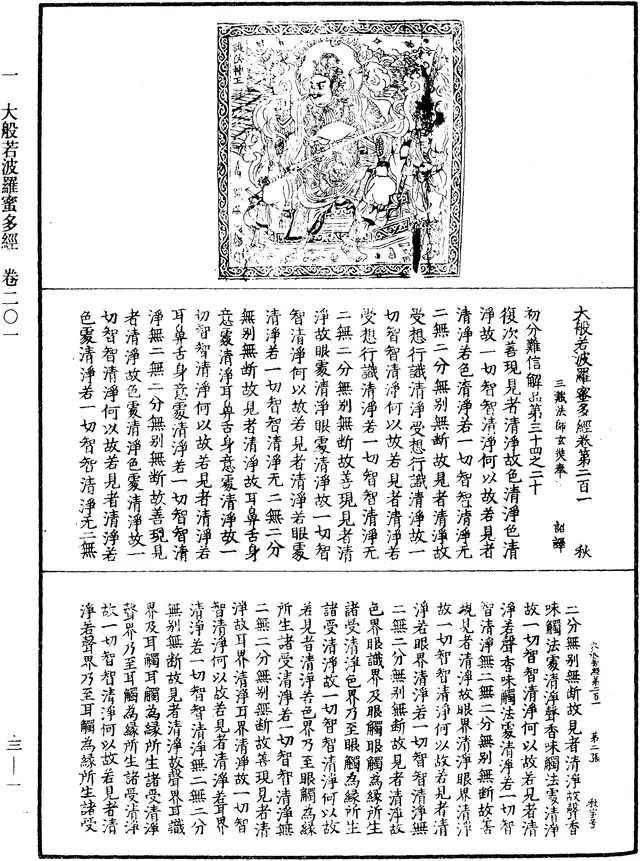 一 大般若波羅蜜多經 卷二〇一
護法神王
大般若波羅蜜多經卷第二百一 秋
三藏法師玄奘奉 詔譯
初分難信解品第三十四之二十
復次善現見者清淨故色清淨色清
淨故一切智智清淨何以故若見者
清淨若色清淨若一切智智清淨无
二無二分無別無斷故見者清淨故
受想行識清淨受想行識清淨故一
切智智清淨何以故若見者清淨若
受想行識清淨若一切智智清淨无
二無二分無別無斷故善現見者清
淨故眼處清淨眼處清淨故一切智
智清淨何以故若見者清淨若眼處
清淨若一切智智清淨无二無二分
無別無斷故見者清淨故耳鼻舌身
意處清淨耳鼻舌身意處清淨故一
切智智清淨何以故若見者清淨若
耳鼻舌身意處清淨若一切智智清
淨無二無二分無別無斷故善現見
者清淨故色處清淨色處清淨故一
切智智清淨何以故若見者清淨若
色處清淨若一切智智清淨无二無
第二張 秋字号
二分無別無斷故見者清淨故聲香
味觸法處清淨聲香味觸法處清淨
故一切智智清淨何以故若見者清
淨若聲香味觸法處清淨若一切智
智清淨無二無二分無別無斷故善
現見者清淨故眼界清淨眼界清淨
故一切智智清淨何以故若見者清
淨若眼界清淨若一切智智清淨無
二無二分無別無斷故見者清淨故
色界眼識界及眼觸眼觸為緣所生
諸受清淨色界乃至眼觸為緣所生
諸受清淨故一切智智清淨何以故
若見者清淨若色界乃至眼觸為緣
所生諸受清淨若一切智智清淨無
二無二分無別無斷故善現見者清
淨故耳界清淨耳界清淨故一切智
智清淨何以故若見者清淨若耳界
清淨若一切智智清淨無二無二分
無別無斷故見者清淨故聲界耳識
界及耳觸耳觸為緣所生諸受清淨
聲界乃至耳觸為緣所生諸受清淨
故一切智智清淨何以故若見者清
淨若聲界乃至耳觸為緣所生諸受
三—一